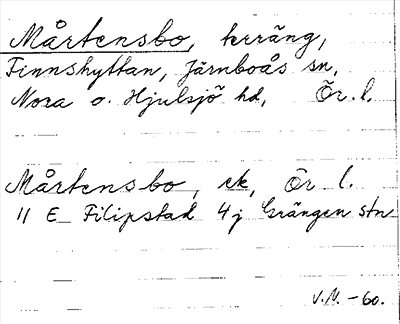 Mårtensbo, terräng,
Finnshyttan, Järnboås sn,
Nora o. Hjulsjö hd, Ör. l.
Mårtensbo, ek, Ör l.
11 E Filipstad 4j Grängen stn
V.N. -60.